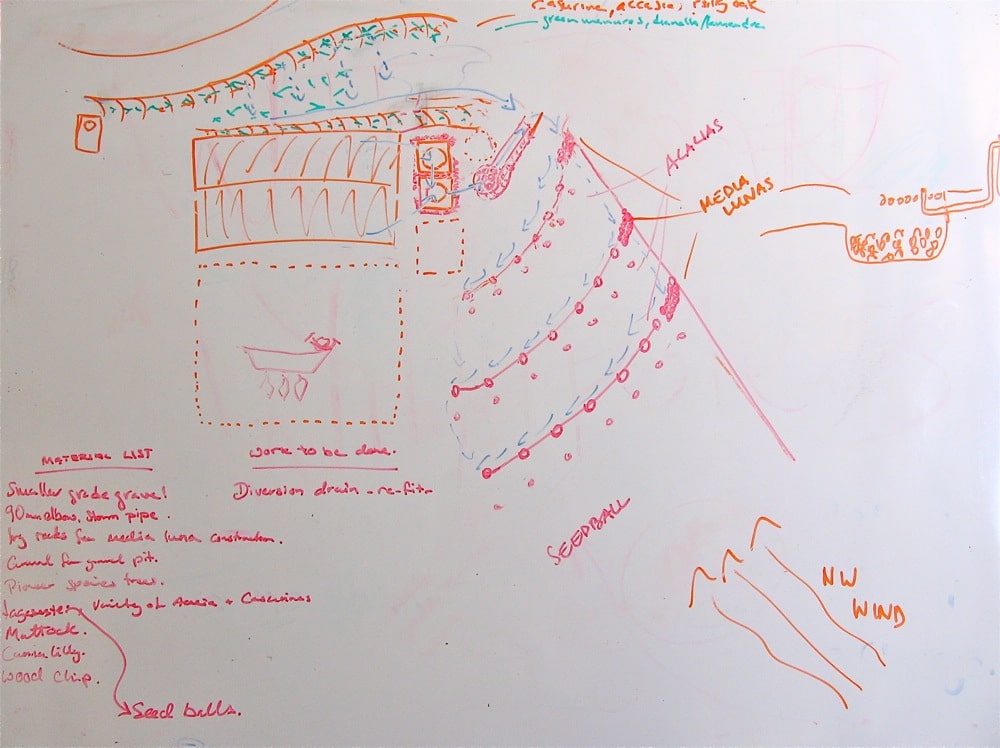 Casurina, accacia, silky oak
green manures,
ACACIAS
MEDIA
LUNAS
SEEDBALL
NW
WIND
MATERIAL LIST
Smaller grade gravel
90mm elbow, storm pipe.
rocks for media luna construction.
Gravel for gravel pit.
Pioneer species trees.
Variety of Acacia + Casurinas
Mattock.
Canna lilly.
Wood Chip.
Seed balls.
Work to be done.
Diversion drain - re-fit-